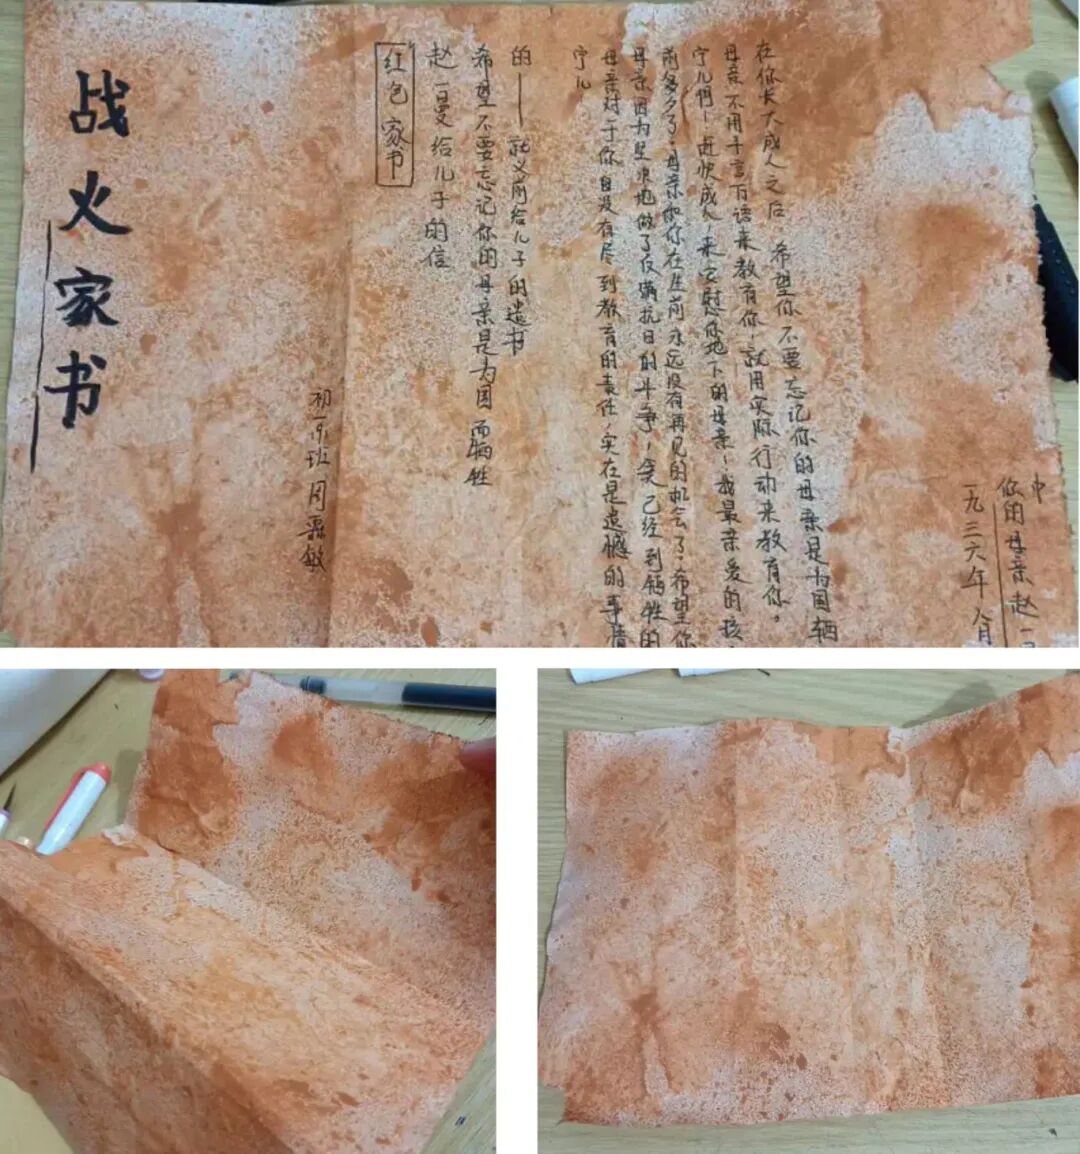 战火家书
初一班 周霖敏
红色家书
赵一曼给儿子的信
希望不要忘记你的母亲是为国而牺牲
的——就义前给儿子的遗书
宁儿
母亲对于你自没有尽到教育的责任,实在是遗憾的事情
母亲因为坚决地做了反满抗日的斗争,已经到牺牲的
前夕了.母亲和你在生前永远没有再见的机会了.希望你
宁儿啊!赶快成人,来安慰你地下的母亲!我最亲爱的孩
母亲不用千言万语来教育你,就用实际行动来教育你。
在你长大成人之后,希望你不要忘记你的母亲是为国牺
一九三六年八月
你的母亲赵一
中